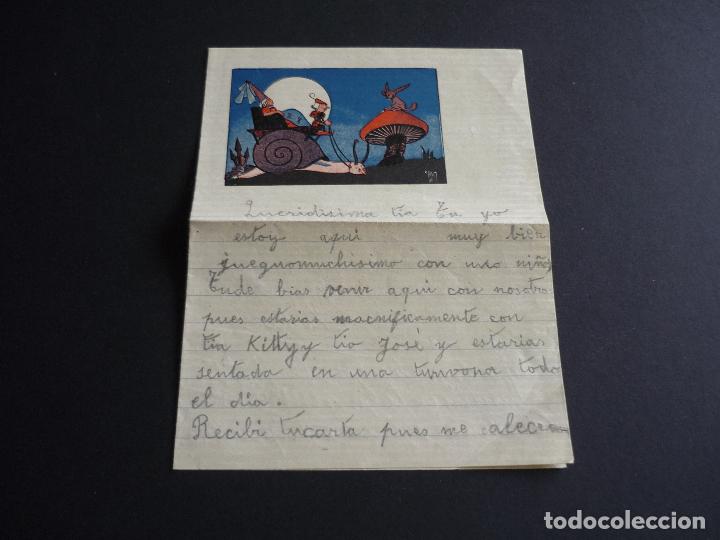 Queridisima tia Tu yo
estoy aqui muy bien
juegnomuchisimo con uno niños
Tude bias venir aqui con nosotro
pues estarias macnificamente con
tia Kittyy tio José y estarias
sentada en una tunvona todo
el dia.
Recibi tucarta pues me alecro
todocoleccion.net